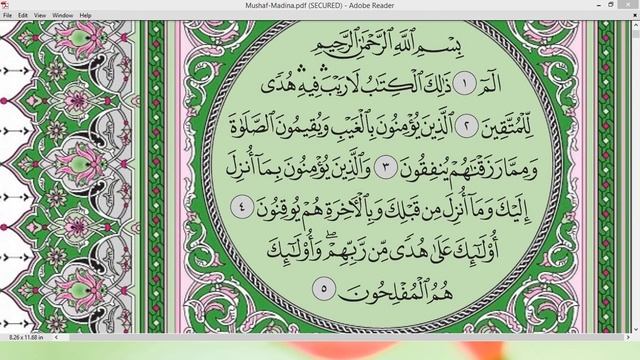 Mushaf-Madina.pdf (SECURED) - Adobe Reader
File Edit View Window Help
بِسْمِ ٱللَّهِ ٱلرَّحْمَٰنِ ٱلرَّحِيمِ
الٓمٓ ١ ذَٰلِكَ ٱلْكِتَٰبُ لَا رَيْبَ ۛ فِيهِ ۛ هُدًى
لِّلْمُتَّقِينَ ٢ ٱلَّذِينَ يُؤْمِنُونَ بِٱلْغَيْبِ وَيُقِيمُونَ ٱلصَّلَوٰةَ
وَمِمَّا رَزَقْنَٰهُمْ يُنفِقُونَ ٣ وَٱلَّذِينَ يُؤْمِنُونَ بِمَآ أُنزِلَ
إِلَيْكَ وَمَآ أُنزِلَ مِن قَبْلِكَ وَبِٱلْءَاخِرَةِ هُمْ يُوقِنُونَ ٤
أُو۟لَٰٓئِكَ عَلَىٰ هُدًى مِّن رَّبِّهِمْ ۖ وَأُو۟لَٰٓئِكَ
هُمُ ٱلْمُفْلِحُونَ ٥
8.26 x 11.68 in